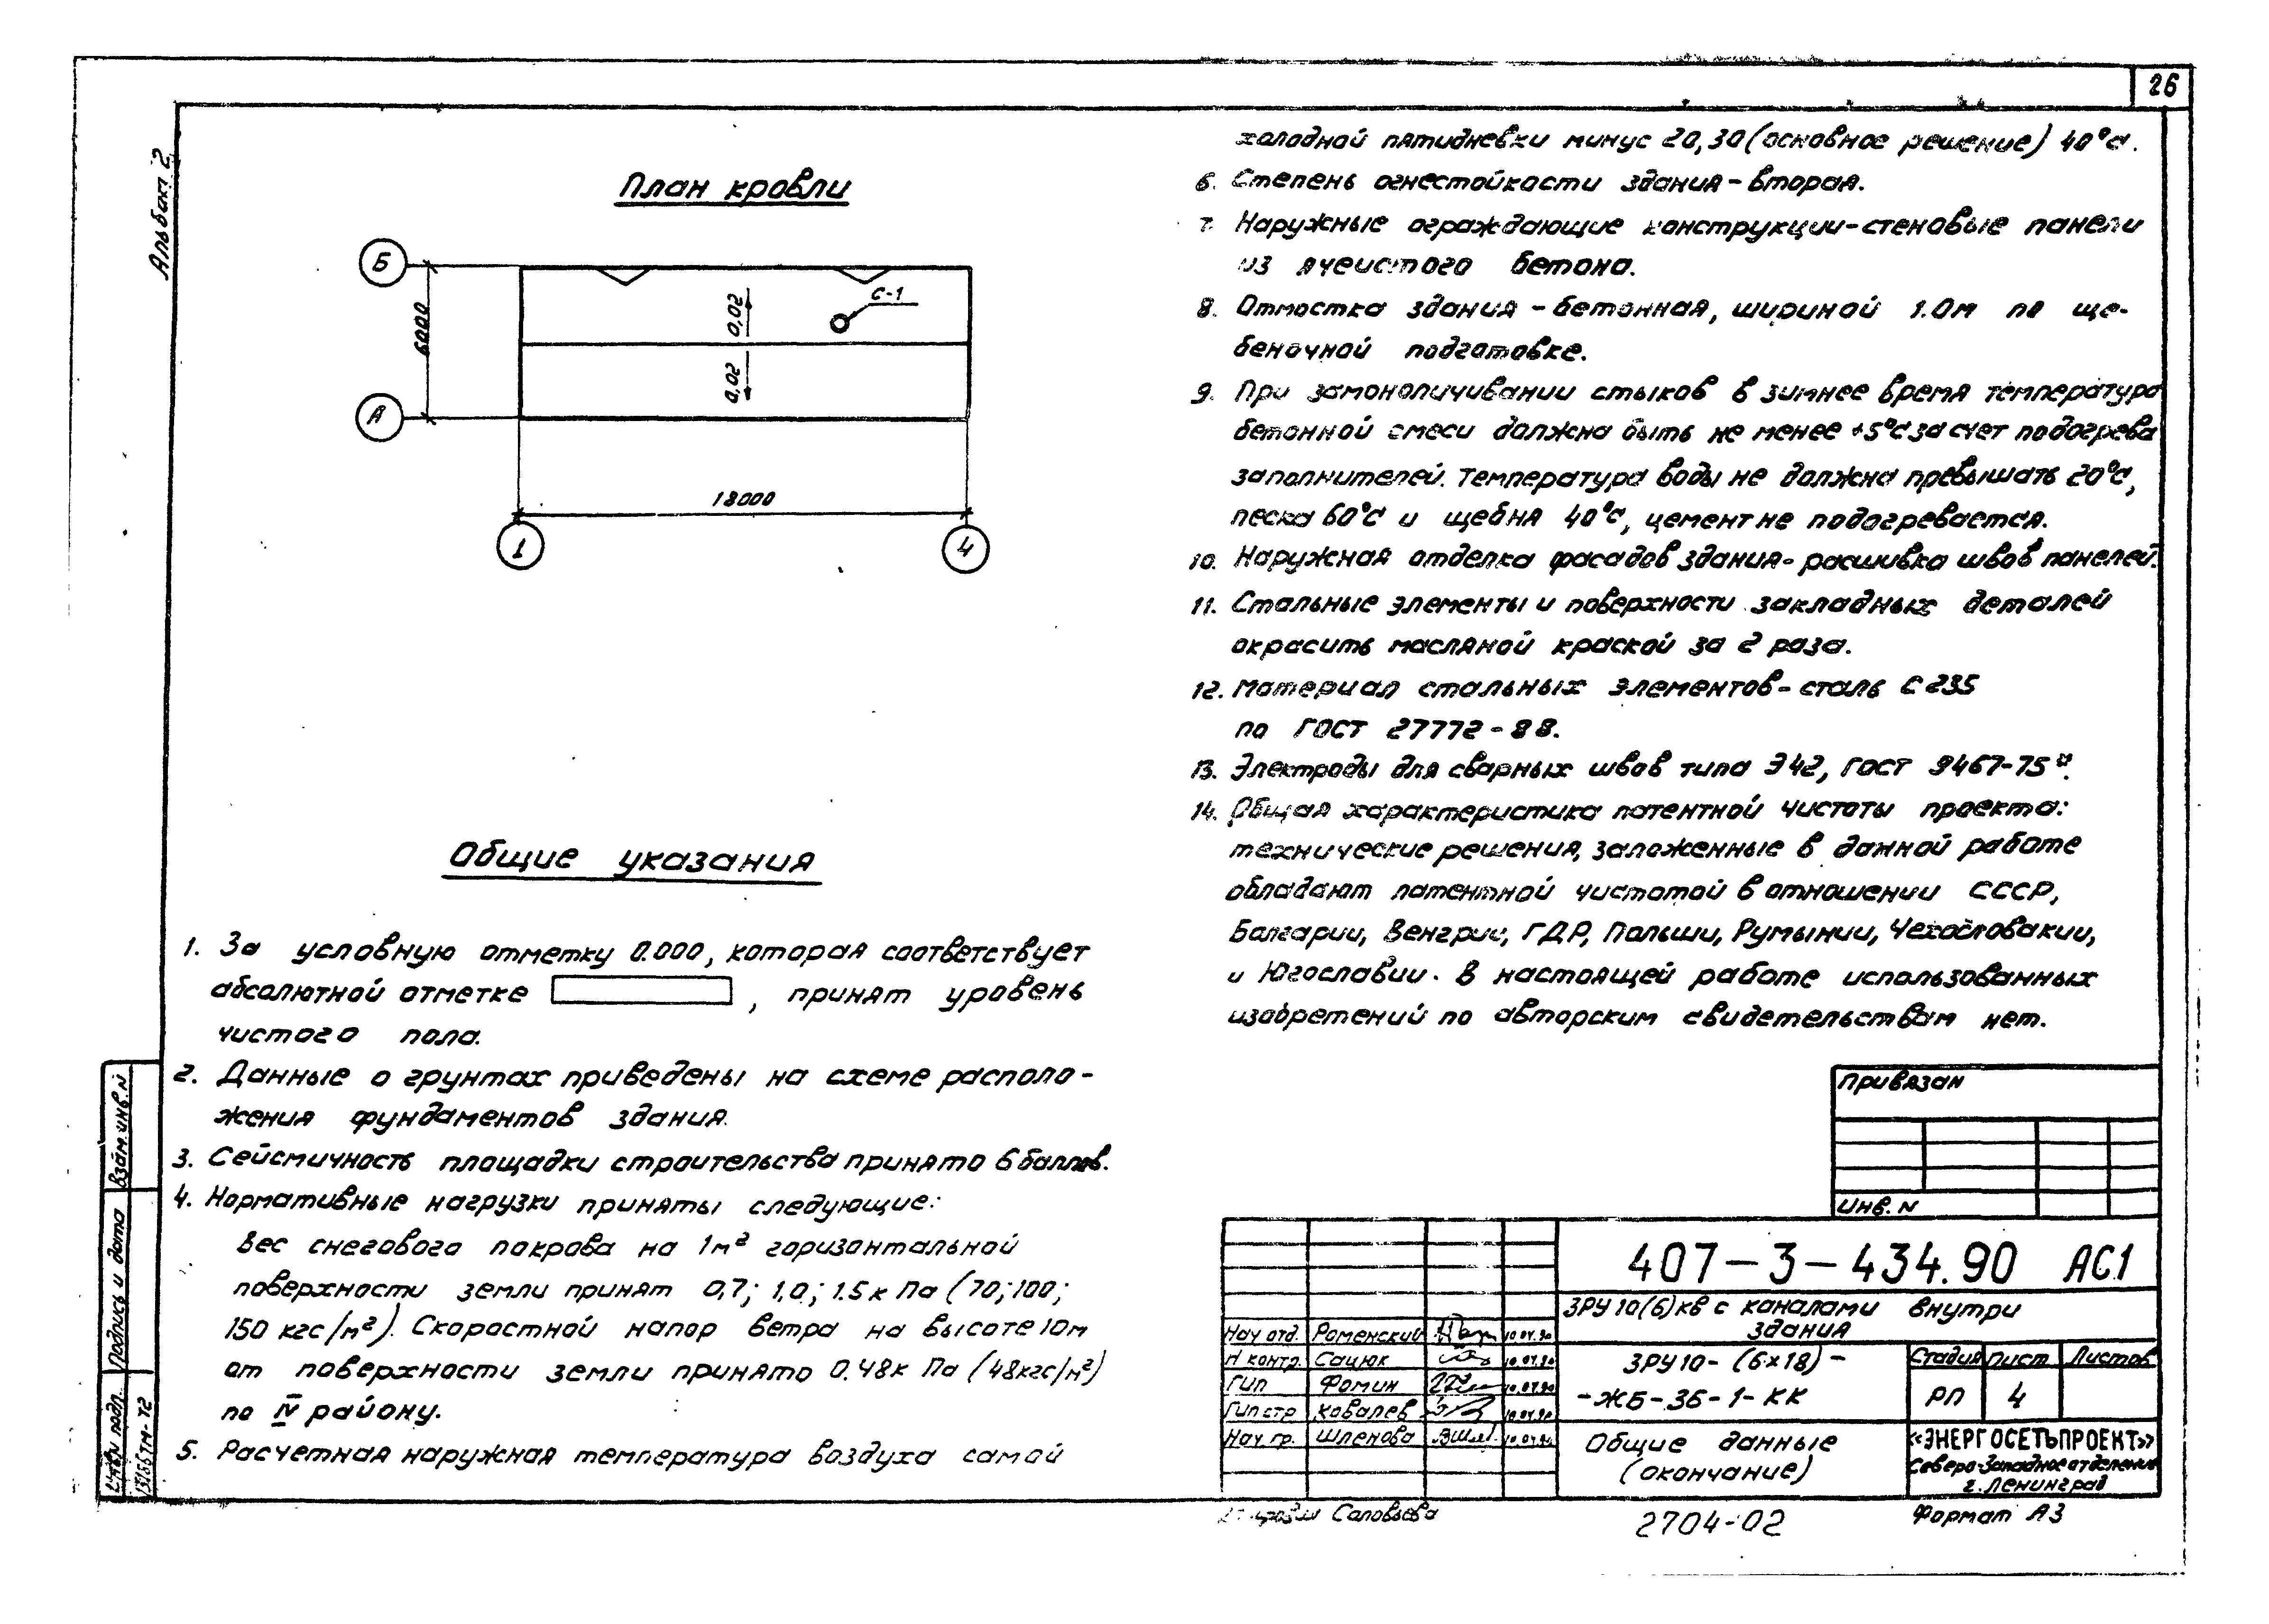 26
Альбом 2
План кровли
Б
А
6000
0,02
0,02
С-1
18000
1
4
Общие указания
1. За условную отметку 0.000, которая соответствует
абсолютной отметке , принят уровень
чистого пола.
2. Данные о грунтах приведены на схеме располо-
жения фундаментов здания.
3. Сейсмичность площадки строительства принято 6 баллов.
4. Нормативные нагрузки приняты следующие:
Вес снегового покрова на 1м² горизонтальной
поверхности земли принят 0,7; 1,0; 1.5к Па (70; 100;
150 кгс/м²). Скоростной напор ветра на высоте 10м
от поверхности земли принято 0.48к Па (48кгс/м²)
по IV району.
5. Расчетная наружная температура воздуха самой
холодной пятидневки минус 20, 30 (основное решение) 40°С.
6. Степень огнестойкости здания - вторая.
7. Наружные ограждающие конструкции - стеновые панели
из ячеистого бетона.
8. Отмостка здания - бетонная, шириной 1.0м по ще-
беночной подготовке.
9. При замоноличивании стыков в зимнее время температура
бетонной смеси должна быть не менее +5°С за счет подогрева
заполнителей. Температура воды не должна превышать 20°С,
песка 60°С и щебня 40°С, цемент не подогревается.
10. Наружная отделка фасадов здания - расшивка швов панелей.
11. Стальные элементы и поверхности закладных деталей
окрасить масляной краской за 2 раза.
12. Материал стальных элементов - сталь С235
по ГОСТ 27772-88.
13. Электроды для сварных швов типа Э42, ГОСТ 9467-75*.
14. Общая характеристика патентной чистоты проекта:
технические решения, заложенные в данной работе
обладают патентной чистотой в отношении СССР,
Болгарии, Венгрии, ГДР, Польши, Румынии, Чехословакии,
и Югославии. В настоящей работе использованных
изобретений по авторским свидетельствам нет.
Привязан
Инв. N
407-3-434.90 АС1
ЗРУ 10(6)кв с каналами внутри
здания
Нач отд. Роменский 10.04.90
Н контр. Сацюк 10.04.90
ГИП Фомин 10.04.90
Гип стр Ковалев 10.04.90
Нач гр. Шленова 10.04.90
ЗРУ10- (6×18) -
-ЖБ-3Б-1-КК
Стадия Лист Листов
РП 4
Общие данные
(окончание)
«ЭНЕРГОСЕТЬПРОЕКТ»
Северо-Западное отделение
г. Ленинград
Соловьева
2704-02
Формат А3
Взам. инв. N
Подпись и дата
Инв. N подл.